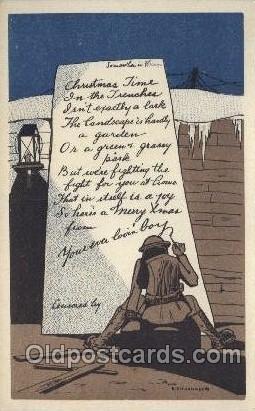 Somewhere in France
Christmas Time
In the Trenches
Isn't exactly a lark
The Landscape is hardly
a garden
Or a green & grassy
park
But we're fighting the
fight for you at home
That in itself is a joy
So here's a Merry Xmas
from
Your ever lovin' boy
Censored by
Oldpostcards.com